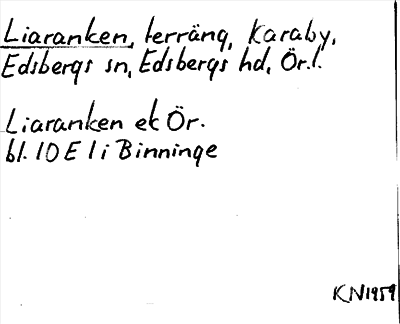 Liaranken, terräng, Karaby,
Edsbergs sn, Edsbergs hd, Ör.l.
Liaranken ek Ör.
bl. 10 E 1 i Binninge
KN1959